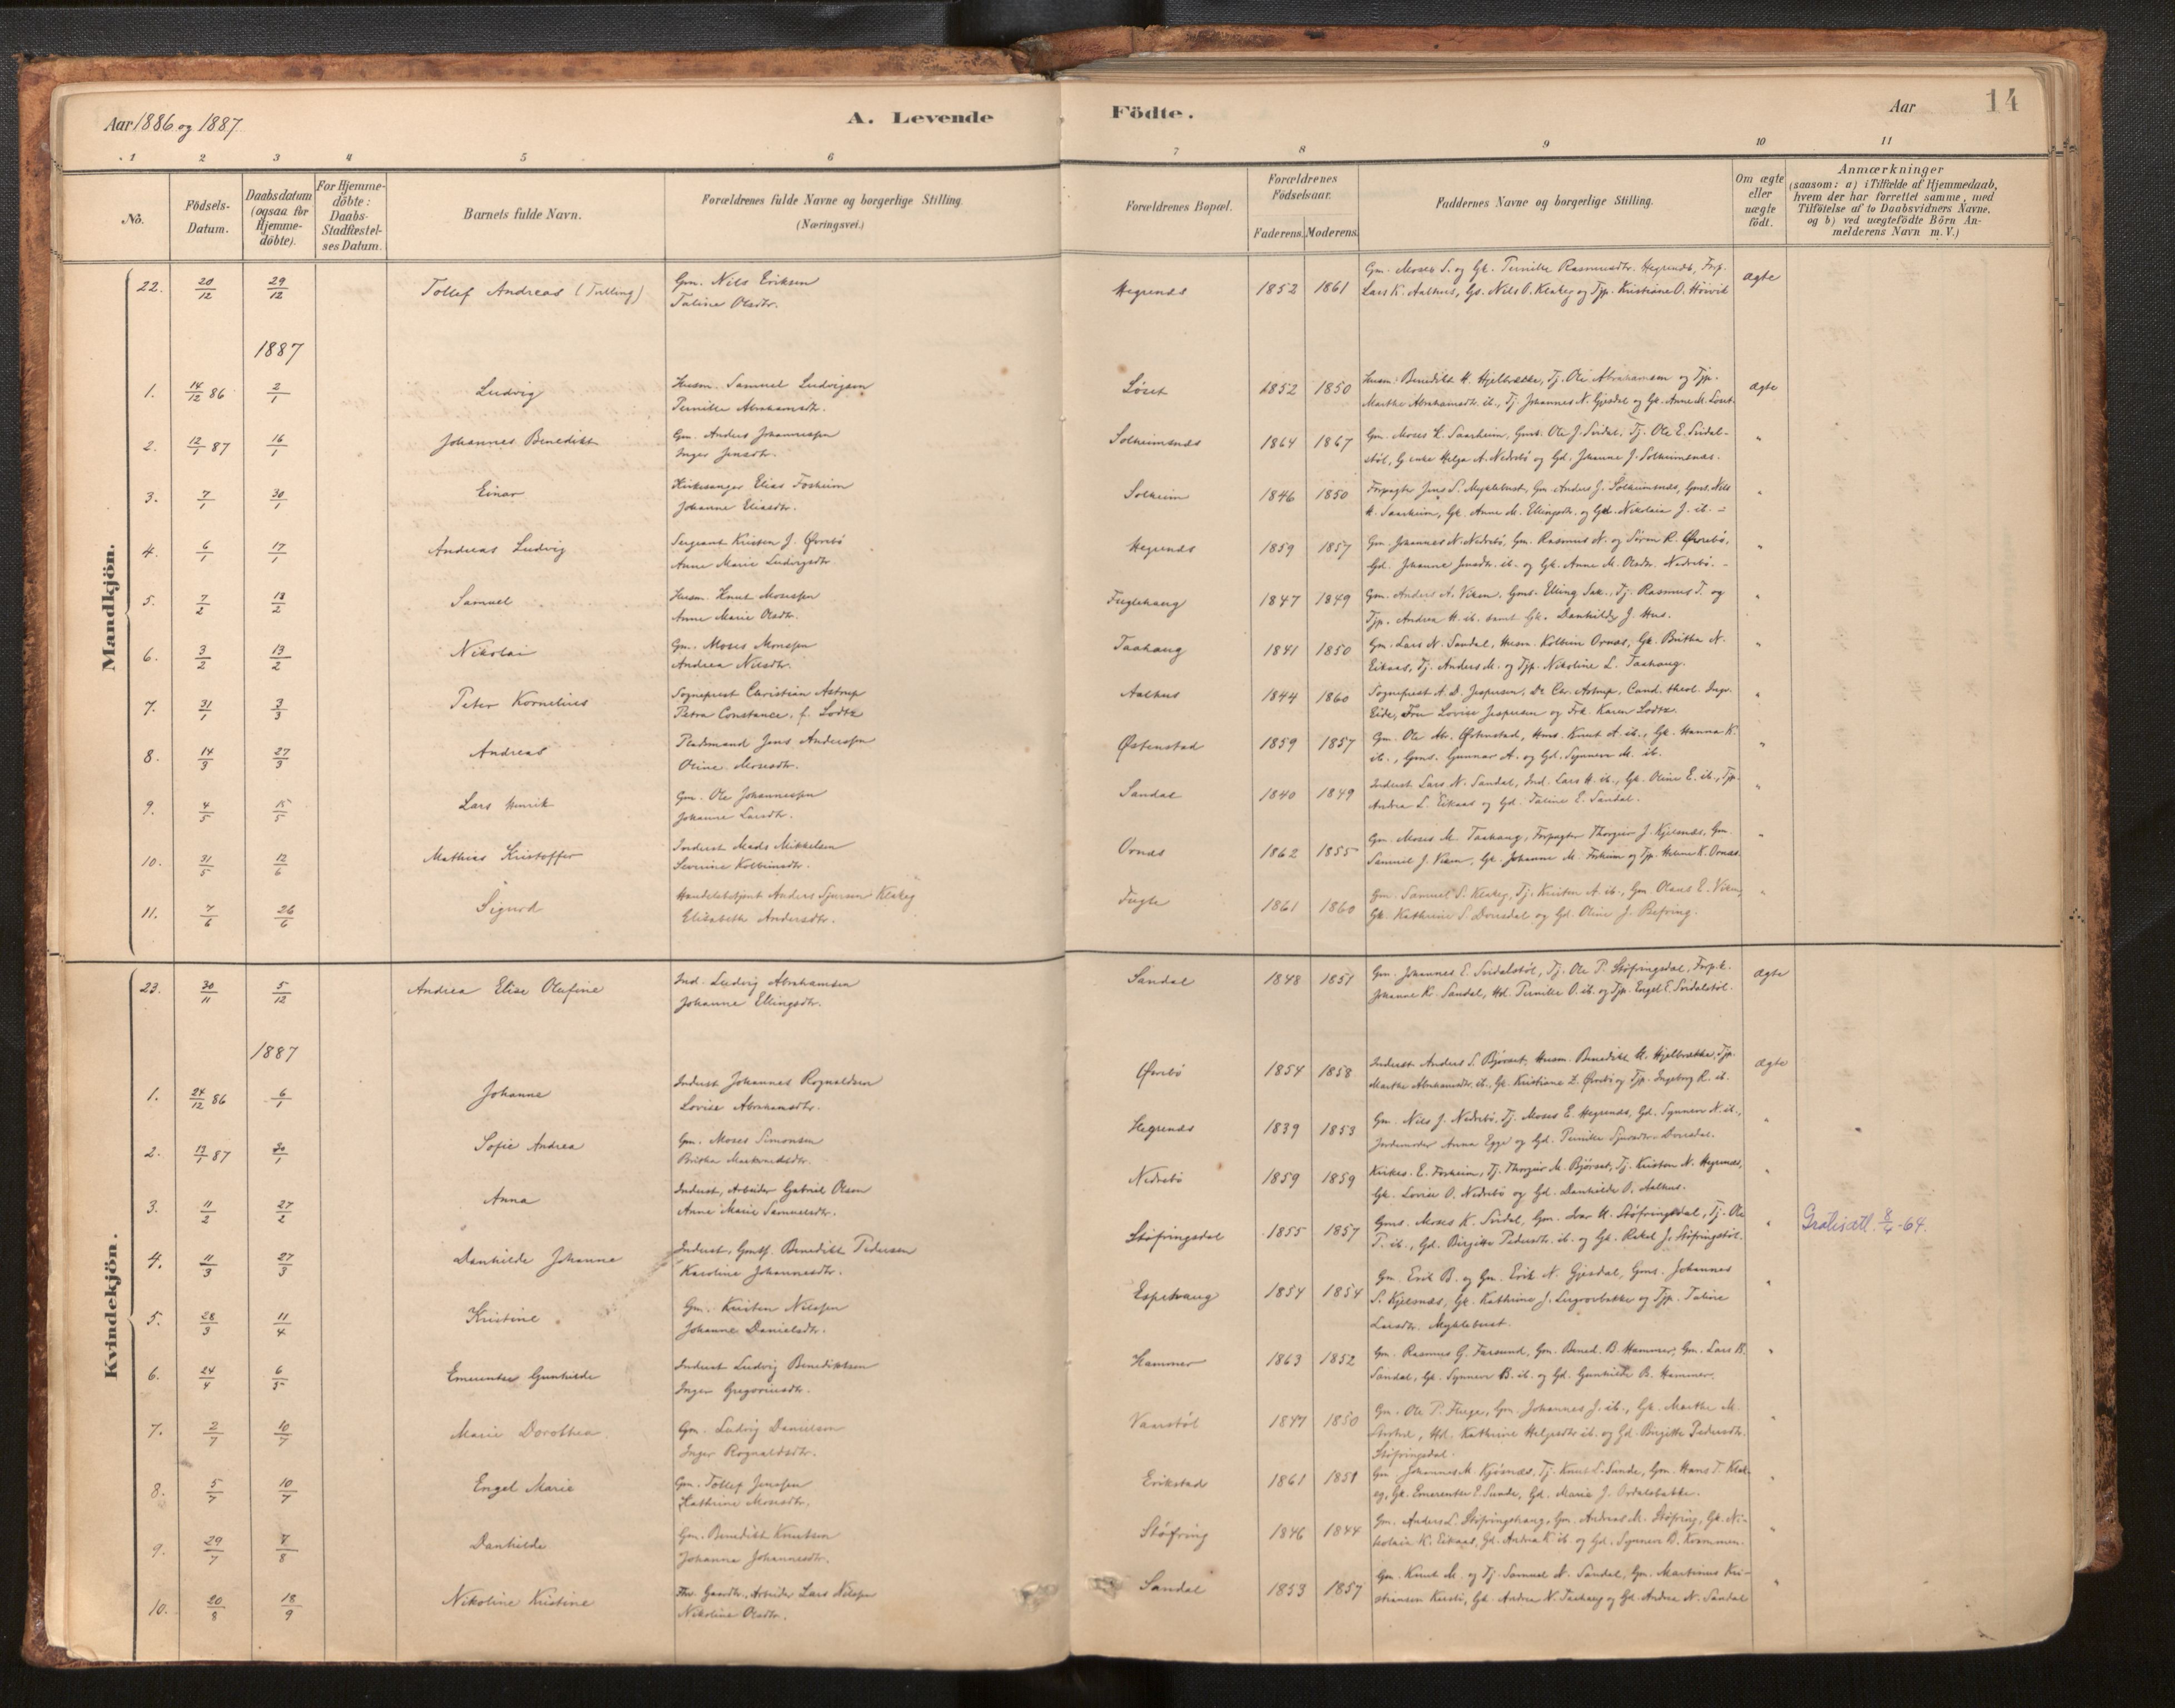 Aar 1886 og 1887.
A. Levende Födte.
Aar
14
1 2 3 4 5 6 7 8 9 10 11
No.
Födsels-Datum.
Daabsdatum (ogsaa for Hjemme-döbte).
For Hjemme-döbte: Daabs-Stadfæstel-ses Datum.
Barnets fulde Navn.
Forældrenes fulde Navne og borgerlige Stilling.
(Næringsvei.)
Forældrenes Bopæl.
Forældrenes Födselsaar.
Faderens. Moderens.
Faddernes Navne og borgerlige Stilling.
Om ægte eller uægte födt.
Anmærkninger
(saasom: a) i Tilfælde af Hjemmedaab,
hvem der har forrettet samme, med
Tilföielse af to Daabsvidners Navne,
og b) ved uægtefödte Börn An-
melderens Navn m. V.)
Mandkjön.
22. 20/12 29/12 Tollef Andreas (Tvilling) Gm. Nils Eriksen
Taline Olsdtr.
Hegrenæs 1852 1861 Gm. Moses S. og Gk. Pernille Rasmusdtr. Hegrenæs, Forp.
Lars K. Aalhus, Gs. Nils O. Klakeg og Tjp. Kristiane O. Høivik ægte
1887
1. 14/12 86 2/1 Ludvig Husm. Samuel Ludvigsen
Pernille Abrahamsdtr.
Løset 1852 1850 Husm. Benedikt H. Hjelbrække, Tj. Ole Abrahamsen og Tjp.
Marthe Abrahamsdtr. ib., Tj. Johannes N. Gjesdal og Gk. Anne M. Løset. ægte
2. 12/1 87 16/1 Johannes Benedikt Gm. Anders Johannessen
Inger Jensdtr.
Solheimsnæs 1864 1867 Gm. Moses K. Saarheim, Gms. Ole J. Svidal, Tj. Ole E. Svidal-
støl, Genke Helga A. Nedrebö og Gd. Johanne J. Solheimsnæs. "
3. 7/1 30/1 Einar Kirkesanger Elias Forheim
Johanne Eliasdtr.
Solheim 1846 1850 Forpagter Jens S. Myklebust, Gm. Anders J. Solheimsnæs, Gms. Nils
K. Saarheim, Gk. Anne M. Ellingsdtr. og Gd. Nikolaia J. ib. "
4. 6/1 17/1 Andreas Ludvig Sergeant Kristen J. Øvrebö
Anne Marie Ludvigsdtr.
Hegrenæs 1859 1857 Gm. Johannes N. Nedrebö, Gm. Rasmus N. og Søren R. Øvrebö,
Gd. Johanne Jensdtr. ib. og Gk. Anne M. Olsdtr. Nedrebö. "
5. 7/2 13/2 Samuel Husm. Knut Mosessen
Anne Marie Olsdtr.
Fuglehaug 1847 1849 Gm. Anders A. Viken, Gms. Elling Sak., Tj. Rasmus T. og
Tjp. Andrea H. ib. samt Gk. Danhilde J. Hus. "
6. 3/2 13/2 Nikolai Gm. Moses Monssen
Andrea Nilsdtr.
Taahaug 1841 1850 Gm. Lars N. Sandal, Husm. Kolbein Ornæs, Gk. Britha N.
Eikaas, Tj. Anders M. og Tjp. Nikoline L. Taahaug. "
7. 31/1 3/3 Peter Kornelius Sogneprest Christian Astrup
Petra Constance, f. Lodtz
Aalhus 1844 1860 Sogneprest A. D. Jespersen, Dr. Chr. Astrup, Cand. theol. Ingv.
Eide, Fru Lovise Jespersen og Frk. Karen Lodtz. "
8. 14/3 27/3 Andreas Pladsmand Jens Anderssen
Oline Mosesdtr.
Østenstad 1859 1857 Gm. Ole Ab. Østenstad, Hms. Knut A. ib., Gk. Hanna K.
ib., Gms. Gunnar A. og Gd. Synneva M. ib. "
9. 4/5 15/5 Lars Henrik Gm. Ole Johannessen
Johanne Larsdtr.
Sandal 1840 1849 Inderst Lars N. Sandal, Ind. Lars H. ib., Gk. Oline E. ib., Tjp.
Andrea L. Eikaas og Gd. Taline E. Sandal. "
10. 31/5 12/6 Mathias Kristoffer Inderst Mads Mikkelsen
Severine Kolbeinsdtr.
Ornæs 1862 1855 Gm. Moses M. Taahaug, Forpagter Thorgeir J. Kjelsnæs, Gm.
Samuel J. Viken, Gk. Johanne M. Forheim og Tjp. Helene K. Ornæs. "
11. 7/6 26/6 Sigurd Handelsbetjent Anders Sjursen Klakeg
Elisabeth Andersdtr.
Fugle 1861 1860 Gm. Samuel S. Klakeg, Tj. Kristen A. ib., Gm. Olaus E. Viken,
Gk. Kathrine S. Dorsdal og Gd. Oline J. Befring. "
Kvindekjön.
23. 30/11 5/12 Andrea Elise Olufine Ind. Ludvig Abrahamsen
Johanne Ellingsdtr.
Sandal 1848 1851 Gm. Johannes E. Svidalstøl, Tj. Ole P. Støfringsdal, Forp.k.
Johanne K. Sandal, Hd. Pernille O. ib. og Tjp. Engel E. Svidalstøl. ægte
1887
1. 24/12 86 6/1 Johanne Inderst Johannes Rognaldsen
Lovise Abrahamsdtr.
Øvrebö 1854 1858 Inderst Anders S. Bjørset, Husm. Benedikt H. Hjelbrække, Tjp.
Marthe Abrahamsdtr. ib., Gk. Kristiane L. Øvrebö og Tjp. Ingeborg R. ib. ægte
2. 13/1 87 30/1 Sofie Andrea Gm. Moses Simonsen
Britha Markvardsdtr.
Hegrenæs 1839 1853 Gm. Nils J. Nedrebö, Tj. Moses E. Hegrenæs, Gd. Synneva N. ib.,
Jordemoder Anna Egge og Gd. Pernille Sjursdtr. Dorsdal. "
3. 11/2 27/2 Anna Inderst, Arbeider Gabriel Olsen
Anne Marie Samuelsdtr.
Nedrebö 1859 1859 Kirkes. E. Forheim, Tj. Thorgeir M. Bjørset, Tj. Kristen N. Hegrenæs,
Gk. Lovise O. Nedrebö og Gd. Danhilde O. Aalhus. "
4. 11/3 27/3 Danhilde Johanna Inderst, Gmsf. Benedikt Pedersen
Karoline Johannesdtr.
Støfringsdal 1855 1857 Gms. Moses K. Svidal, Gm. Ivar A. Støfringsdal, Tj. Ole
P. ib., Gd. Birgitte Pedersdtr. ib. og Gd. Rakel J. Støfringstøl. " 8/4-64.
5. 28/3 11/4 Kristine Gm. Kristen Nilssen
Johanne Danielsdtr.
Espehaug 1854 1854 Gm. Erik B. og Gm. Erik N. Gjesdal, Gms. Johannes
S. Kjelsnæs, Gk. Kathrine J. og Tjp. Taline
Larsdtr. Myklebust. "
6. 24/4 6/5 Emerentse Gunhilde Inderst Ludvig Benediktsen
Inger Gregoriusdtr.
Hammer 1863 1852 Gm. Rasmus G. Farsund, Gm. Bened. B. Hammer, Gm. Lars B.
Sandal, Gk. Synneve B. ib. og Gd. Gunhilde B. Hammer. "
7. 2/7 10/7 Marie Dorothea Gm. Ludvig Danielsen
Inger Rognaldsdtr.
Vaarstøl 1847 1850 Gm. Ole P. Fluge, Gm. Johannes J. ib., Gk. Marthe M.
Hd. Kathrine Helgesdtr. ib. og Gd. Birgitte Pedersdtr.
Støfringsdal. "
8. 5/7 10/7 Engel Marie Gm. Tollef Jenssen
Kathrine Mosesdtr.
Erikstad 1861 1851 Gm. Johannes M. Kjøsnæs, Tj. Knut L. Sunde, Gm. Hans T. Klak-
eg, Gk. Emerentse E. Sunde, Gd. Marie J. Ordalsbakke. "
9. 29/7 7/8 Danhilde Gm. Benedikt Knutsen
Johanna Johannesdtr.
Støfring 1846 1844 Gm. Anders L. Støfringshaug, Gm. Andreas M. Støfring, Gk. Ni-
kolaia K. Eikaas, Gd. Andrea K. ib. og Gd. Synneva B. Kvammen. "
10. 20/8 18/9 Nikoline Kristine Arbeider Lars Nilssen
Nikoline Olsdtr.
Sandal 1853 1857 Gm. Knut M. og Tj. Samuel N. Sandal, Gm. Martinus Kri-
stiansen Gk. Andrea N. Taahaug og Gd. Andrea N. Sandal "